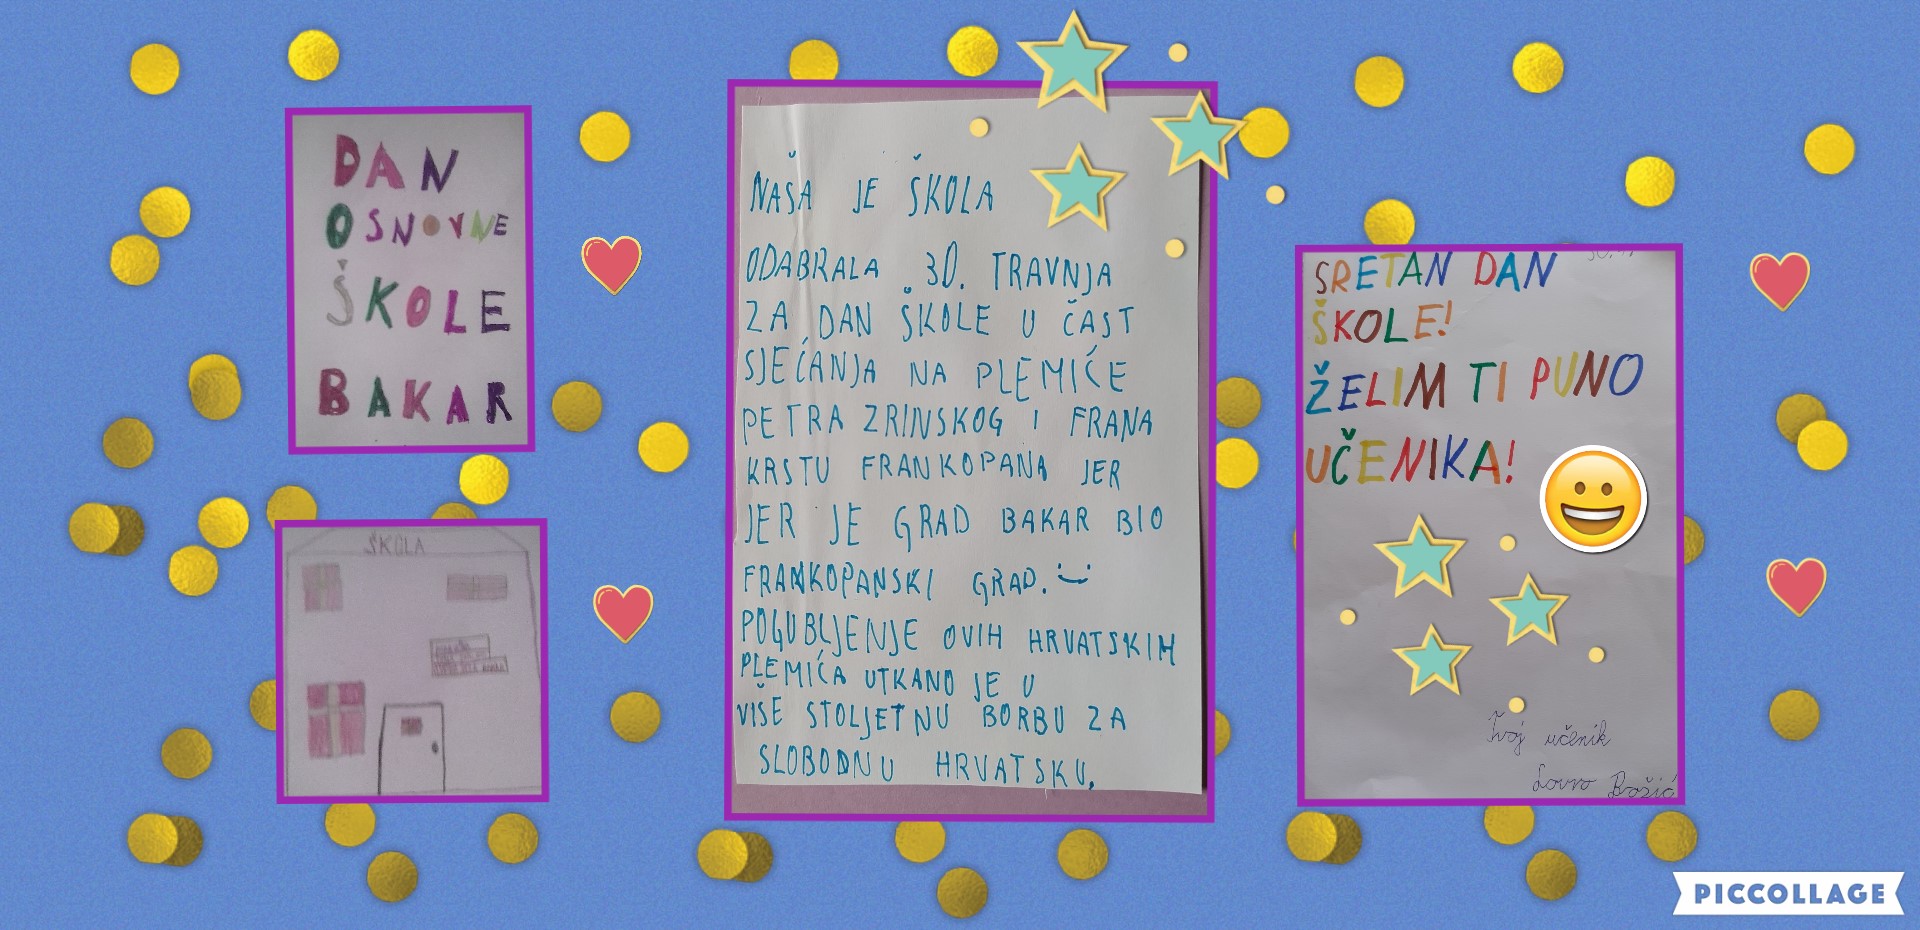 DAN
OSNOVNE
ŠKOLE
BAKAR
ŠKOLA
NAŠA JE ŠKOLA
ODABRALA 30. TRAVNJA
ZA DAN ŠKOLE U ČAST
SJEĆANJA NA PLEMIĆE
PETRA ZRINSKOG I FRANA
KRSTU FRANKOPANA JER
JER JE GRAD BAKAR BIO
FRANKOPANSKI GRAD.
POGUBLJENJE OVIH HRVATSKIM
PLEMIĆA UTKANO JE U
VIŠE STOLJETNU BORBU ZA
SLOBODNU HRVATSKU.
SRETAN DAN
ŠKOLE!
ŽELIM TI PUNO
UČENIKA!
Tvoj učenik
Lovro Božić
PICCOLLAGE